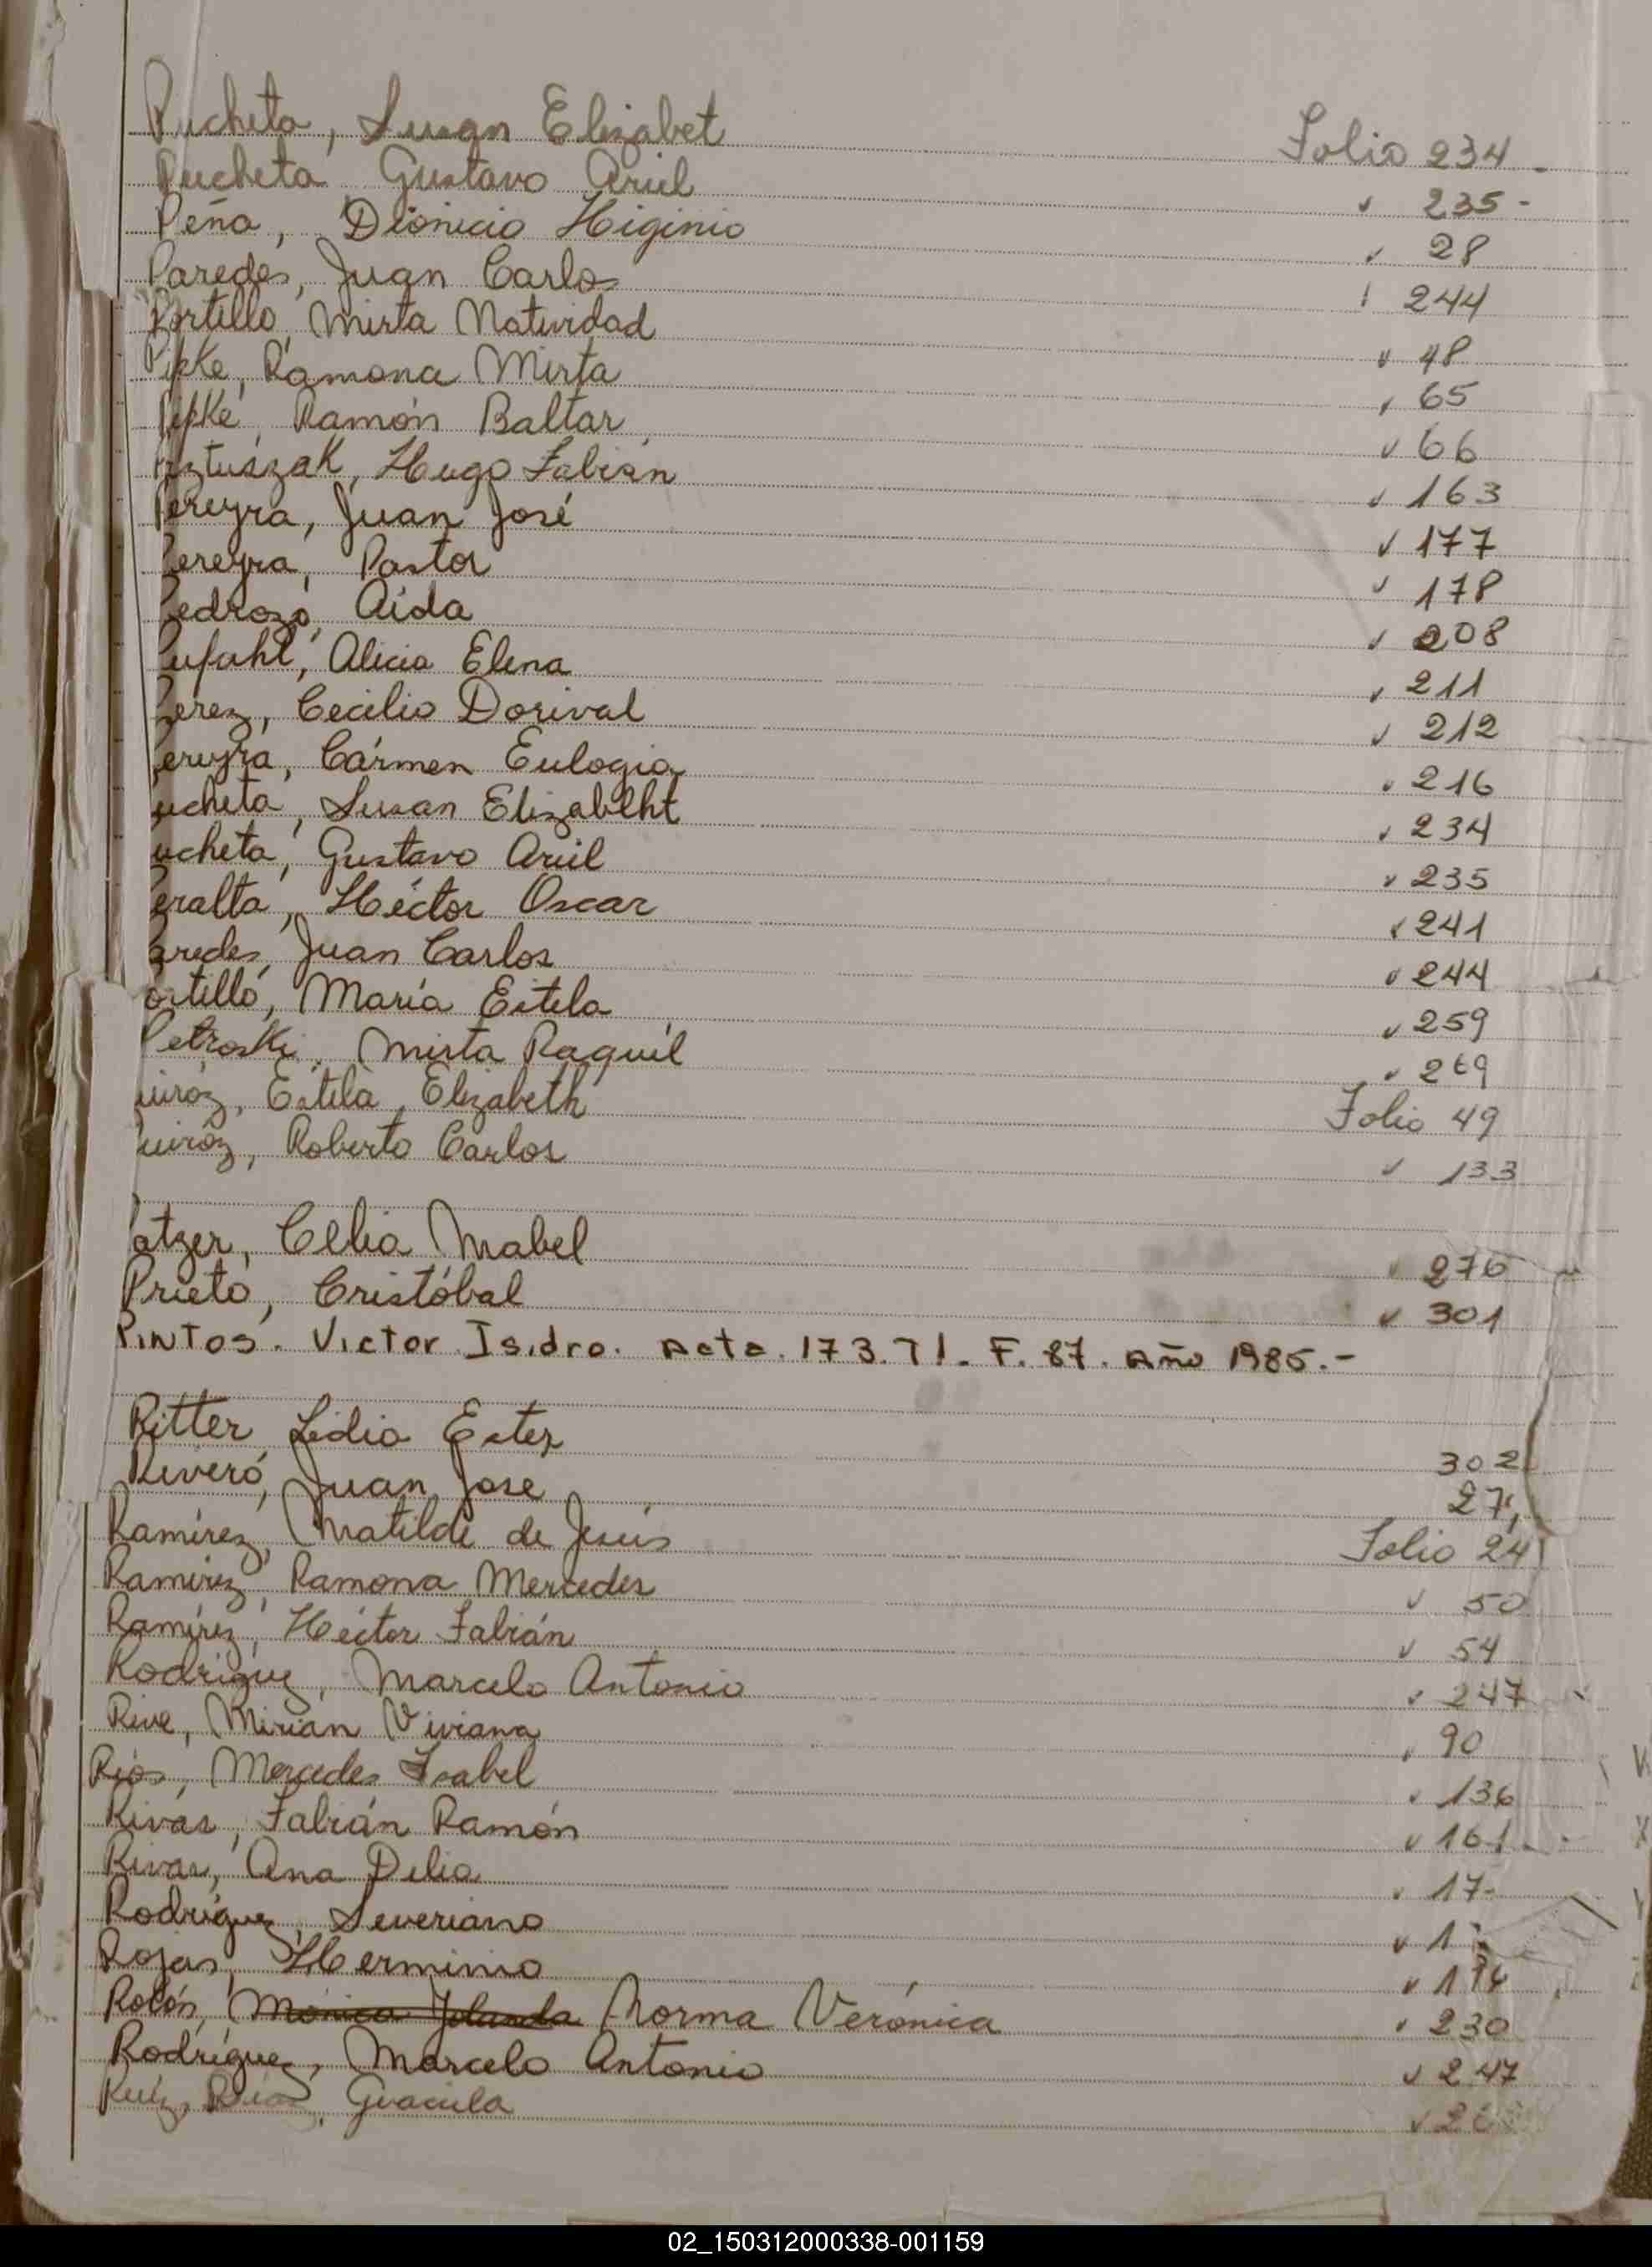 Pucheta, Susan Elizabet Folio 234 -
Pucheta Gustavo Ariel " 235 -
Peña, Dionicio Higinio " 28
Paredes, Juan Carlos " 244
Portillo, Mirta Natividad " 48
Pipke, Ramona Mirta " 65
Pipke, Ramón Baltar " 66
Hugo Fabián " 163
Pereyra, Juan José " 177
Pereyra, Pastor " 178
Pedrozo, Aida " 208
Pufahl, Alicia Elena " 211
Perez, Cecilio Dorival " 212
Pereyra, Cármen Eulogia " 216
ucheta, Susan Elizabelht " 234
ucheta, Gustavo Ariel " 235
Peralta, Héctor Oscar " 241
aredes, Juan Carlos " 244
ortillo, María Estela " 259
Petroski, Mirta Raquel " 269
uiróz, Estela, Elizabeth Folio 49
uiróz, Roberto Carlos " 133
atzer, Celia Mabel " 276
Prieto, Cristóbal " 301
Pintos. Victor Isidro. Acta. 173. T1. F. 87. Año 1985.-
Ritter, Lidia Ester 302
Rivero, Juan José 27
Ramírez, Matilde de Jesús Folio 24
Ramírez, Ramona Mercedes " 50
Ramírez, Héctor Fabián " 54
Rodríguez, Marcelo Antonio " 247
Rive, Mirian Viviana " 90
Ríos, Mercedes Isabel " 136
Rivas, Fabián Ramón " 161
Rivas, Ana Delia " 17
Rodríguez, Severiano " 1
Rojas, Herminio "
Rolón, Mónica Yolanda Norma Verónica " 230
Rodríguez, Marcelo Antonio " 247
Ruíz, Graciela "
02_150312000338-001159